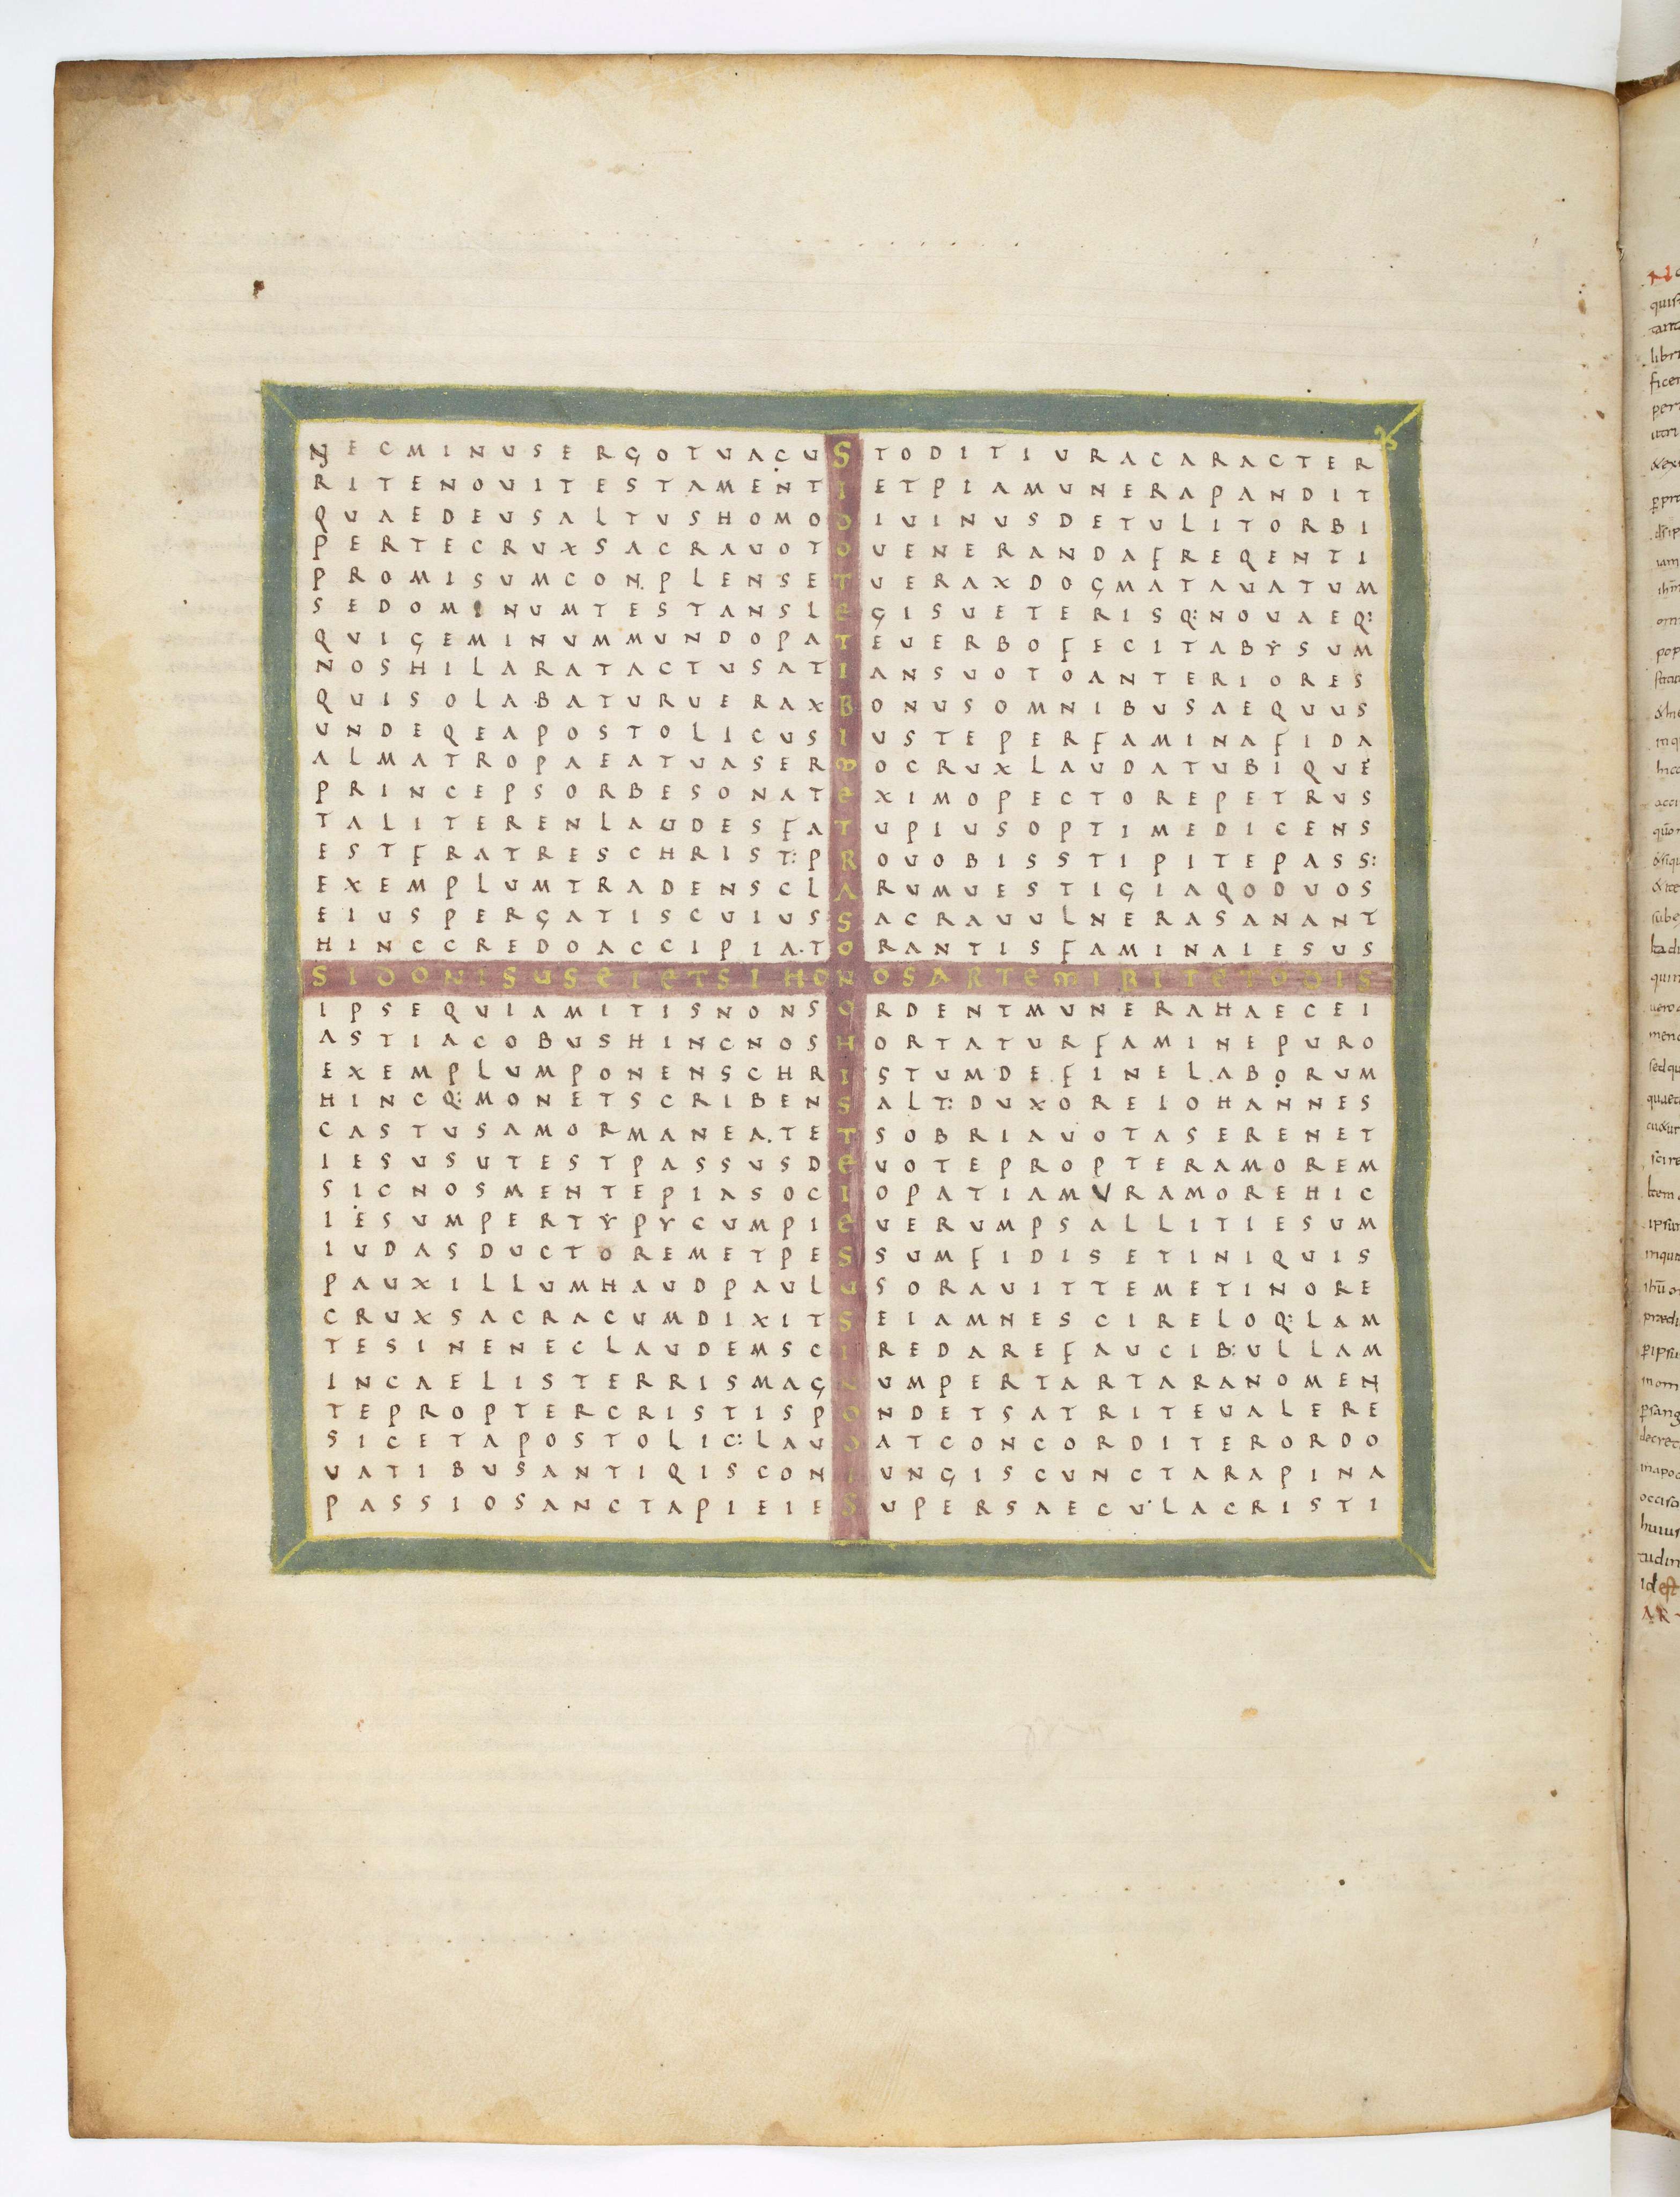 NECMINUSERGOTUACUSTODITIURACARACTER
RITENOUITESTAMENTIETPIAMUNERAPANDIT
QUAEDEUSALTUSHOMODIUINUSDETULITORBI
PERTECRUXSACRAUOTOUENERANDAFREQENTI
PROMISUMCONPLENSETUERAXDOGMATAUATUM
SEDOMINUMTESTANSLEGISUETERISQ:NOUAEQ:
QUIGEMINUMMUNDOPATEUERBOFECITABYSUM
NOSHILARATACTUSATIANSUOTOANTERIORES
QUISOLABATURUERAXBONUSOMNIBUSAEQUUS
UNDEQEAPOSTOLICUSIUSTEPERFAMINAFIDA
ALMATROPAEATUASERMOCRUXLAUDATUBIQUE
PRINCEPSORBESONATEXIMOPECTOREPETRUS
TALITERENLAUDESFATUPIUSOPTIMEDICENS
ESTFRATRESCHRIST:PROUOBISSTIPITEPASS:
EXEMPLUMTRADENSCLARUMUESTIGIAQODUOS
EIUSPERGATISCUIUSSACRAUULNERASANANT
HINCCREDOACCIPIATORANTISFAMINAIESUS
SIDONISUSEIETSIHONOSARTEMIBITETODIS
IPSEQUIAMITISNONSORDENTMUNERAHAECEI
ASTIACOBUSHINCNOSHORTATURFAMINEPURO
EXEMPLUMPONENSCHRISTUMDEFINELABORUM
HINCQ:MONETSCRIBENSALT:DUXOREIOHANNES
CASTUSAMORMANEATETSOBRIAUOTASERENET
IESUSUTESTPASSUSDEUOTEPROPTERAMOREM
SICNOSMENTEPIASOCIOPATIAMVRAMOREHIC
IESUMPERTYPYCUMPIEUERUMPSALLITIESUM
IUDASDUCTOREMETPESSUMFIDISETINIQUIS
PAUXILLUMHAUDPAULUSORAUITTEMETINORE
CRUXSACRACUMDIXITSEIAMNESCIRELOQ:LAM
TESINENECLAUDEMSCIREDAREFAUCIB:ULLAM
INCAELISTERRISMAGNUMPERTARTARANOMEN
TEPROPTERCRISTISPONDETSATRITEUALERE
SICETAPOSTOLIC:LAUDATCONCORDITERORDO
UATIBUSANTIQISCONIUNGISCUNCTARAPINA
PASSIOSANCTAPIEIESUPERSAECULACRISTI